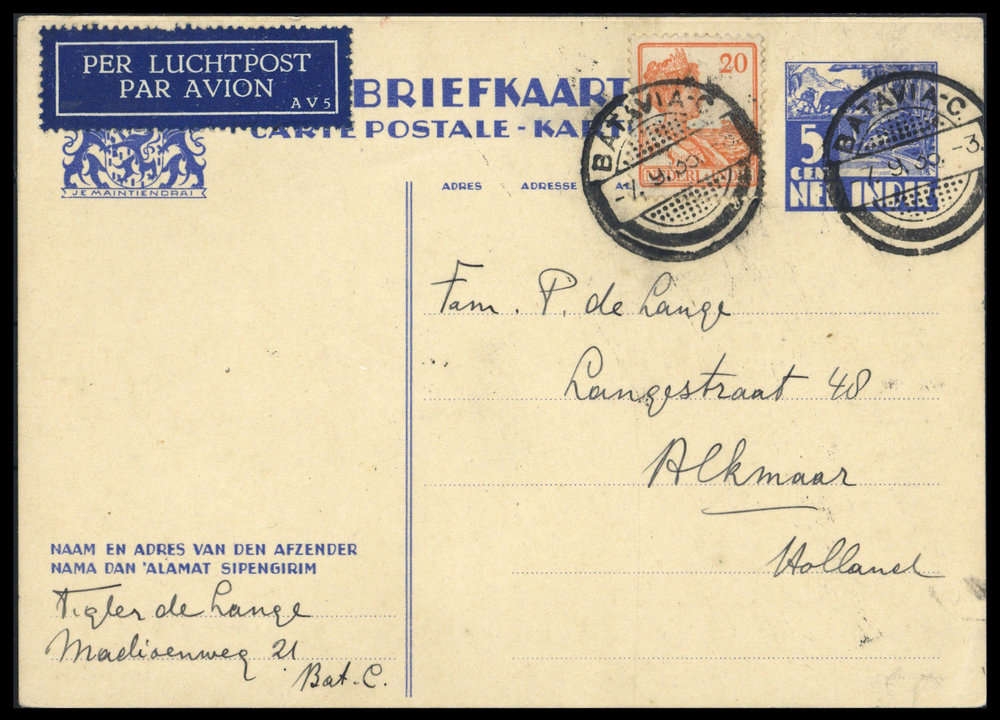 PER LUCHTPOST
PAR AVION
AV5
BRIEFKAART
CARTE POSTALE - KART
JE MAINTIENDRAI
ADRES ADRESSE
20
NEDERL.INDIË
BATAVIA-C.
-7.9.35.
5
CENT
NED. INDIË
BATAVIA-C.
-7.9.35.-3
Fam. P. de Lange
Langestraat 48
Alkmaar
Holland
NAAM EN ADRES VAN DEN AFZENDER
NAMA DAN 'ALAMAT SIPENGIRIM
Tigler de Lange
Madioenweg 21
Bat. C.